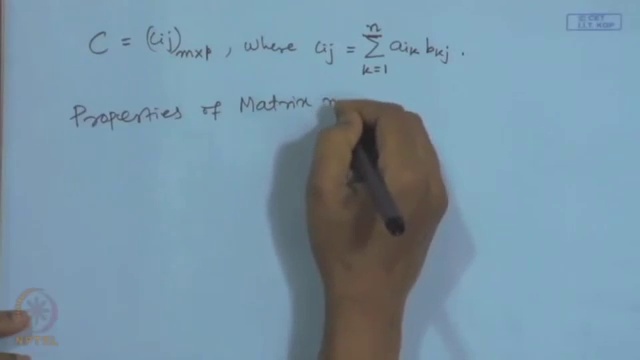 C = (cij)m×p , where cij = ∑k=1n aik bkj .
Properties of Matrix m
© CET
I.I.T. KGP
NPTEL